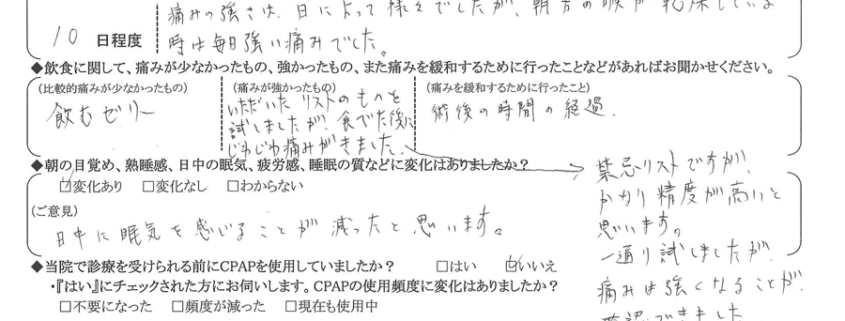 痛みの強さは、日によって様々でしたが、朝方の喉が乾燥している
10 日程度
時は毎日強い痛みでした。
◆飲食に関して、痛みが少なかったもの、強かったもの、また痛みを緩和するために行ったことなどがあればお聞かせください。
(比較的痛みが少なかったもの)
飲むゼリー
(痛みが強かったもの)
いただいたリストのものを
試しましたが、食べた後に
じわじわ痛みがきました。
(痛みを緩和するために行ったこと)
術後の時間の経過.
◆朝の目覚め、熟睡感、日中の眠気、疲労感、睡眠の質などに変化はありましたか?
☑変化あり □変化なし □わからない
(ご意見)
日中に眠気を感じることが減ったと思います。
禁忌リストですが、
かなり精度が高いと
思います。
一通り試しましたが、
痛みは強くなることが、
確認できました
◆当院で診療を受けられる前にCPAPを使用していましたか? □はい ☑いいえ
・『はい』にチェックされた方にお伺いします。CPAPの使用頻度に変化はありましたか?
□不要になった □頻度が減った □現在も使用中